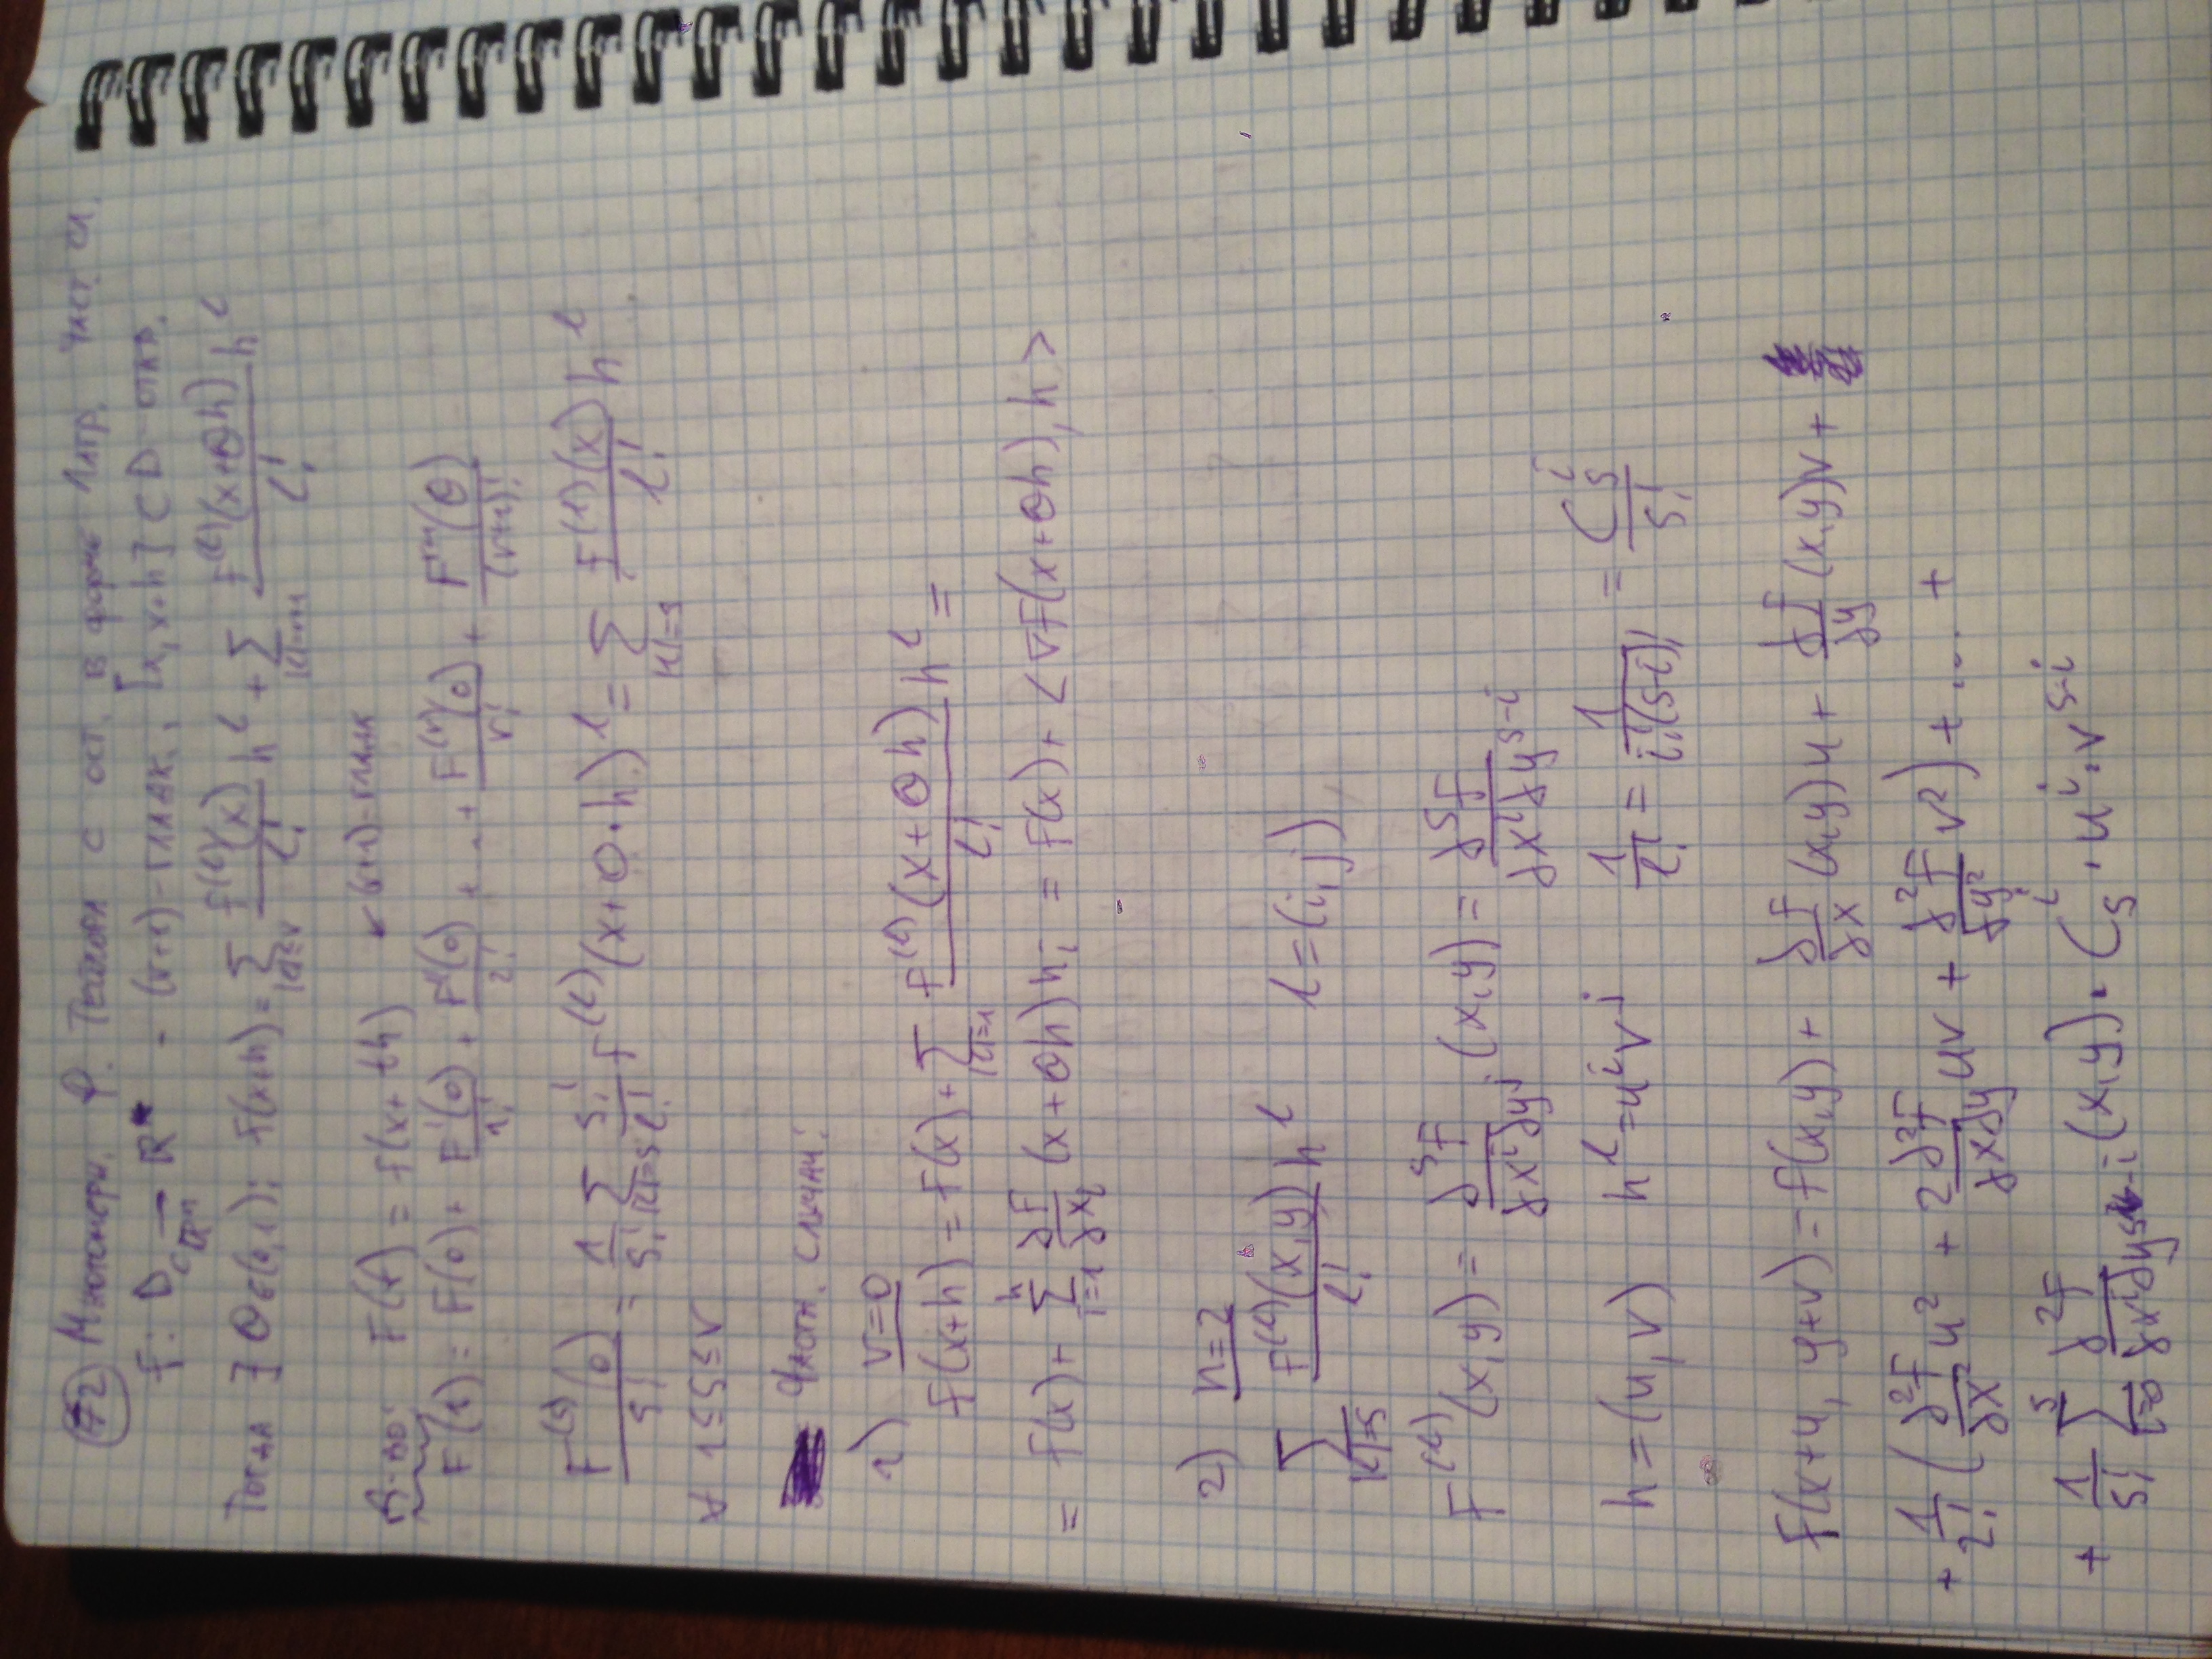 72 Многомерн. Ф. Тейлора с ост. в форме Лагр. Част. сл.
f: D ⊂ ℝⁿ → ℝ - (r+1)-гладк., [x, x+h] ⊂ D откр.
Тогда ∃ θ∈(0,1): f(x+h) = Σ_{|l|≤r} f^(l)(x)/l! h^l + Σ_{|l|=r+1} f^(l)(x+θh)/l! h^l
Д-во: F(t) = f(x+th) ↙ (r+1)-гладк
F(1) = F(0) + F'(0)/1! + F''(0)/2! + ... + F^(r)(0)/r! + F^{r+1}(θ)/(r+1)!
F^(s)(0)/s! = 1/s! Σ_{|l|=s} s!/l! f^(l)(x+0·h)^l = Σ_{|l|=s} f^(l)(x)/l! h^l
∀ 1≤s≤r
Частн. случаи:
1) r=0
f(x+h) = f(x) + Σ_{|l|=1} f^(l)(x+θh)/l! h^l =
= f(x) + Σ_{i=1}^{n} ∂f/∂x_i (x+θh) h_i = f(x) + <∇f(x+θh), h>
2) n=2
Σ_{|l|=s} f^(l)(x,y)/l! h^l l=(i,j)
F^(l)(x,y) = ∂^s f/∂x^i∂y^j (x,y) = ∂^s f/∂x^i∂y^{s-i}
h=(u,v) h^l=u^i v^j 1/l! = 1/i!(s-i)! = C_s^i/s!
f(x+u, y+v) = f(x,y) + ∂f/∂x (x,y)u + ∂f/∂y (x,y)v +
+ 1/2! (∂²f/∂x² u² + 2∂²f/∂x∂y uv + ∂²f/∂y² v²) + .... +
+ 1/s! Σ_{i=0}^{s} ∂²f/∂x^i∂y^{s-i} (x,y)· C_s^i · u^i · v^{s-i}